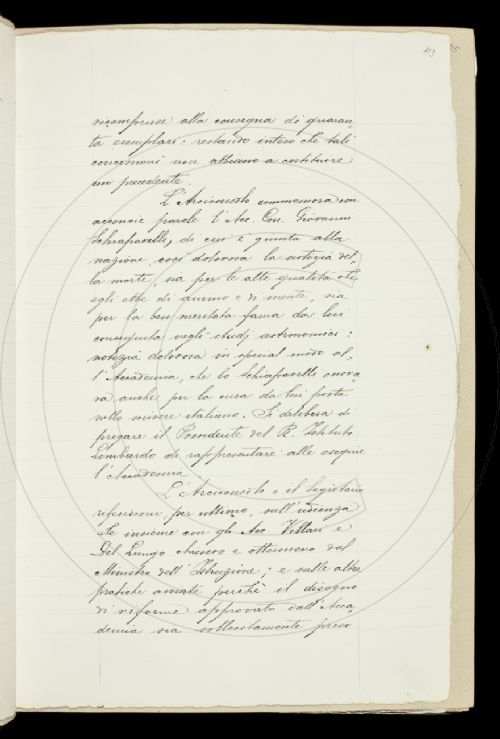 ricompense alla consegna di quaran-
ta esemplari: restando inteso che tali
concessioni non abbiano a costituire
un precedente.
L'Arciconsolo commemora con
acconcie parole l'Acc. Cor. Giovanni
Schiaparelli, di cui è giunta alla
nazione così dolorosa la notizia del-
la morte, sia per le alte qualità che
egli ebbe di animo e di mente, sia
per la ben meritata fama da lui
conseguita negli studj astronomici:
notizia dolorosa in special modo al-
l'Accademia, che lo Schiaparelli onora-
va anche per la cura da lui posta
nello scrivere italiano. Si delibera di
pregare il Presidente del R. Istituto
Lombardo di rappresentare alle esequie
l'Accademia.
L'Arciconsolo e il Segretario
riferiscono per ultimo, sull'udienza
che insieme con gli Acc. Villari e
Del Lungo chiesero e ottennero dal
Ministro dell'Istruzione; e sulle altre
pratiche avviate perchè il disegno
di riforme approvato dall'Acca-
demia sia sollecitamente preso